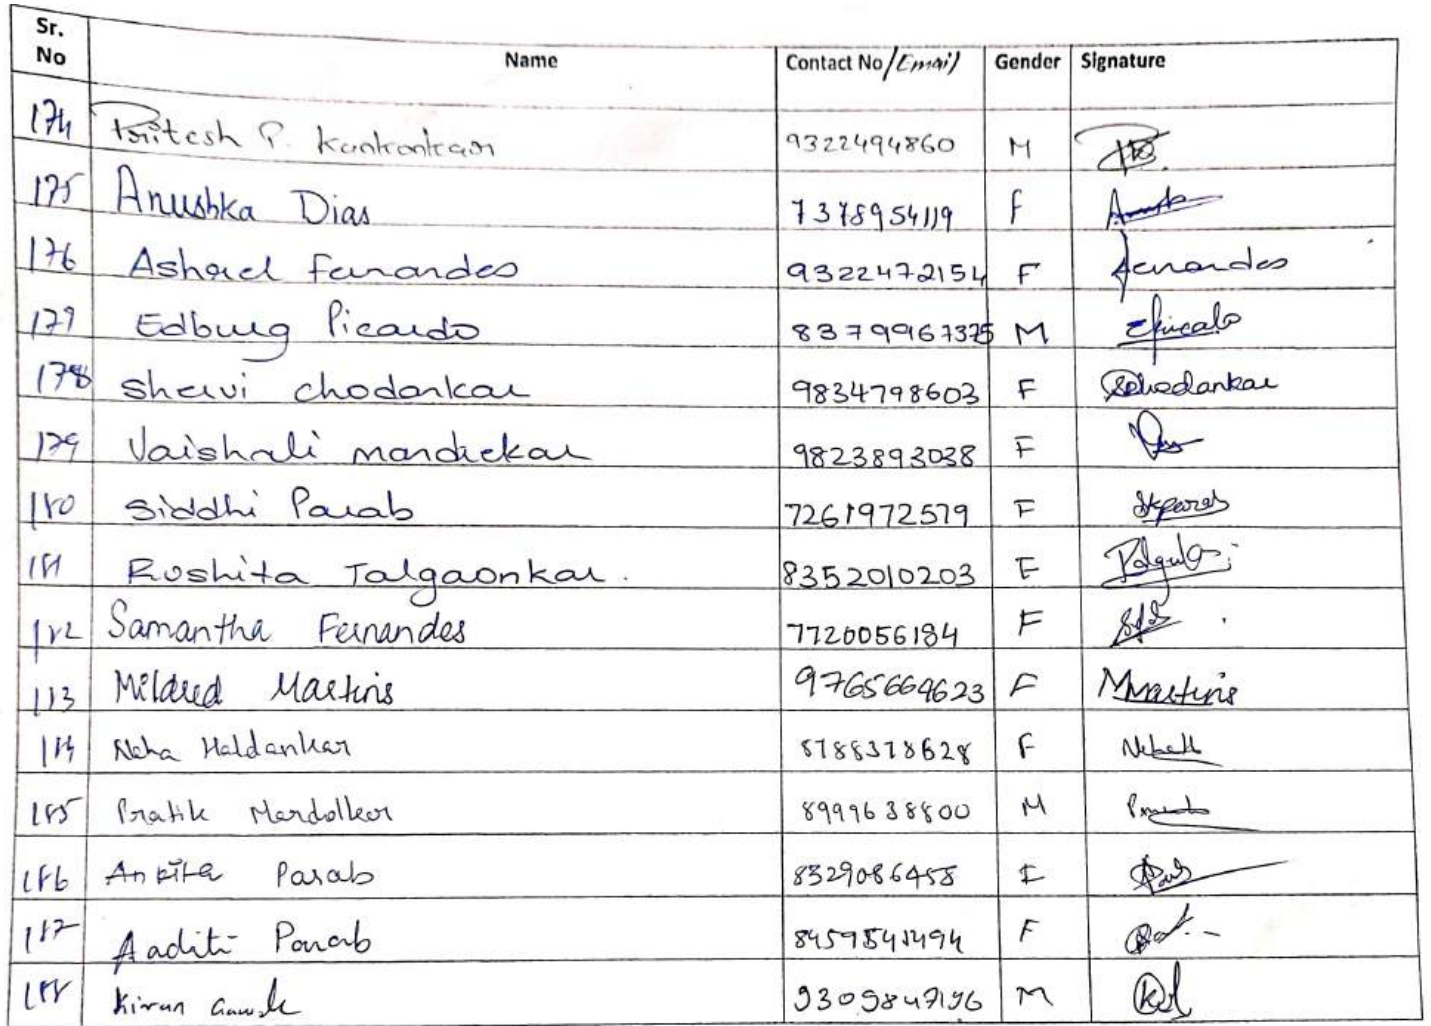 Sr. No Name Contact No/Email) Gender Signature
174 Pritesh P. Kankonkar 9322494860 M
175 Anushka Dias 7378954119 F
176 Ashael Fernandes 9322472154 F Fernandes
177 Edburg Picardo 8379967375 M
178 Shervi chodankar 9834798603 F Schodankar
179 Vaishali mandrekar 9823893038 F
180 Siddhi Parab 7261972579 F
181 Roshita Talgaonkar. 8352010203 F
182 Samantha Fernandes 7720056184 F
183 Mildred Martins 9765664623 F MMartins
184 Neha Haldankar 8788378628 F
185 Pratik Mardolkar 8999638800 M
186 Ankita Parab 8329086458 F
187 Aaditi Parab F
188 Kiran Gawde 9309847196 M